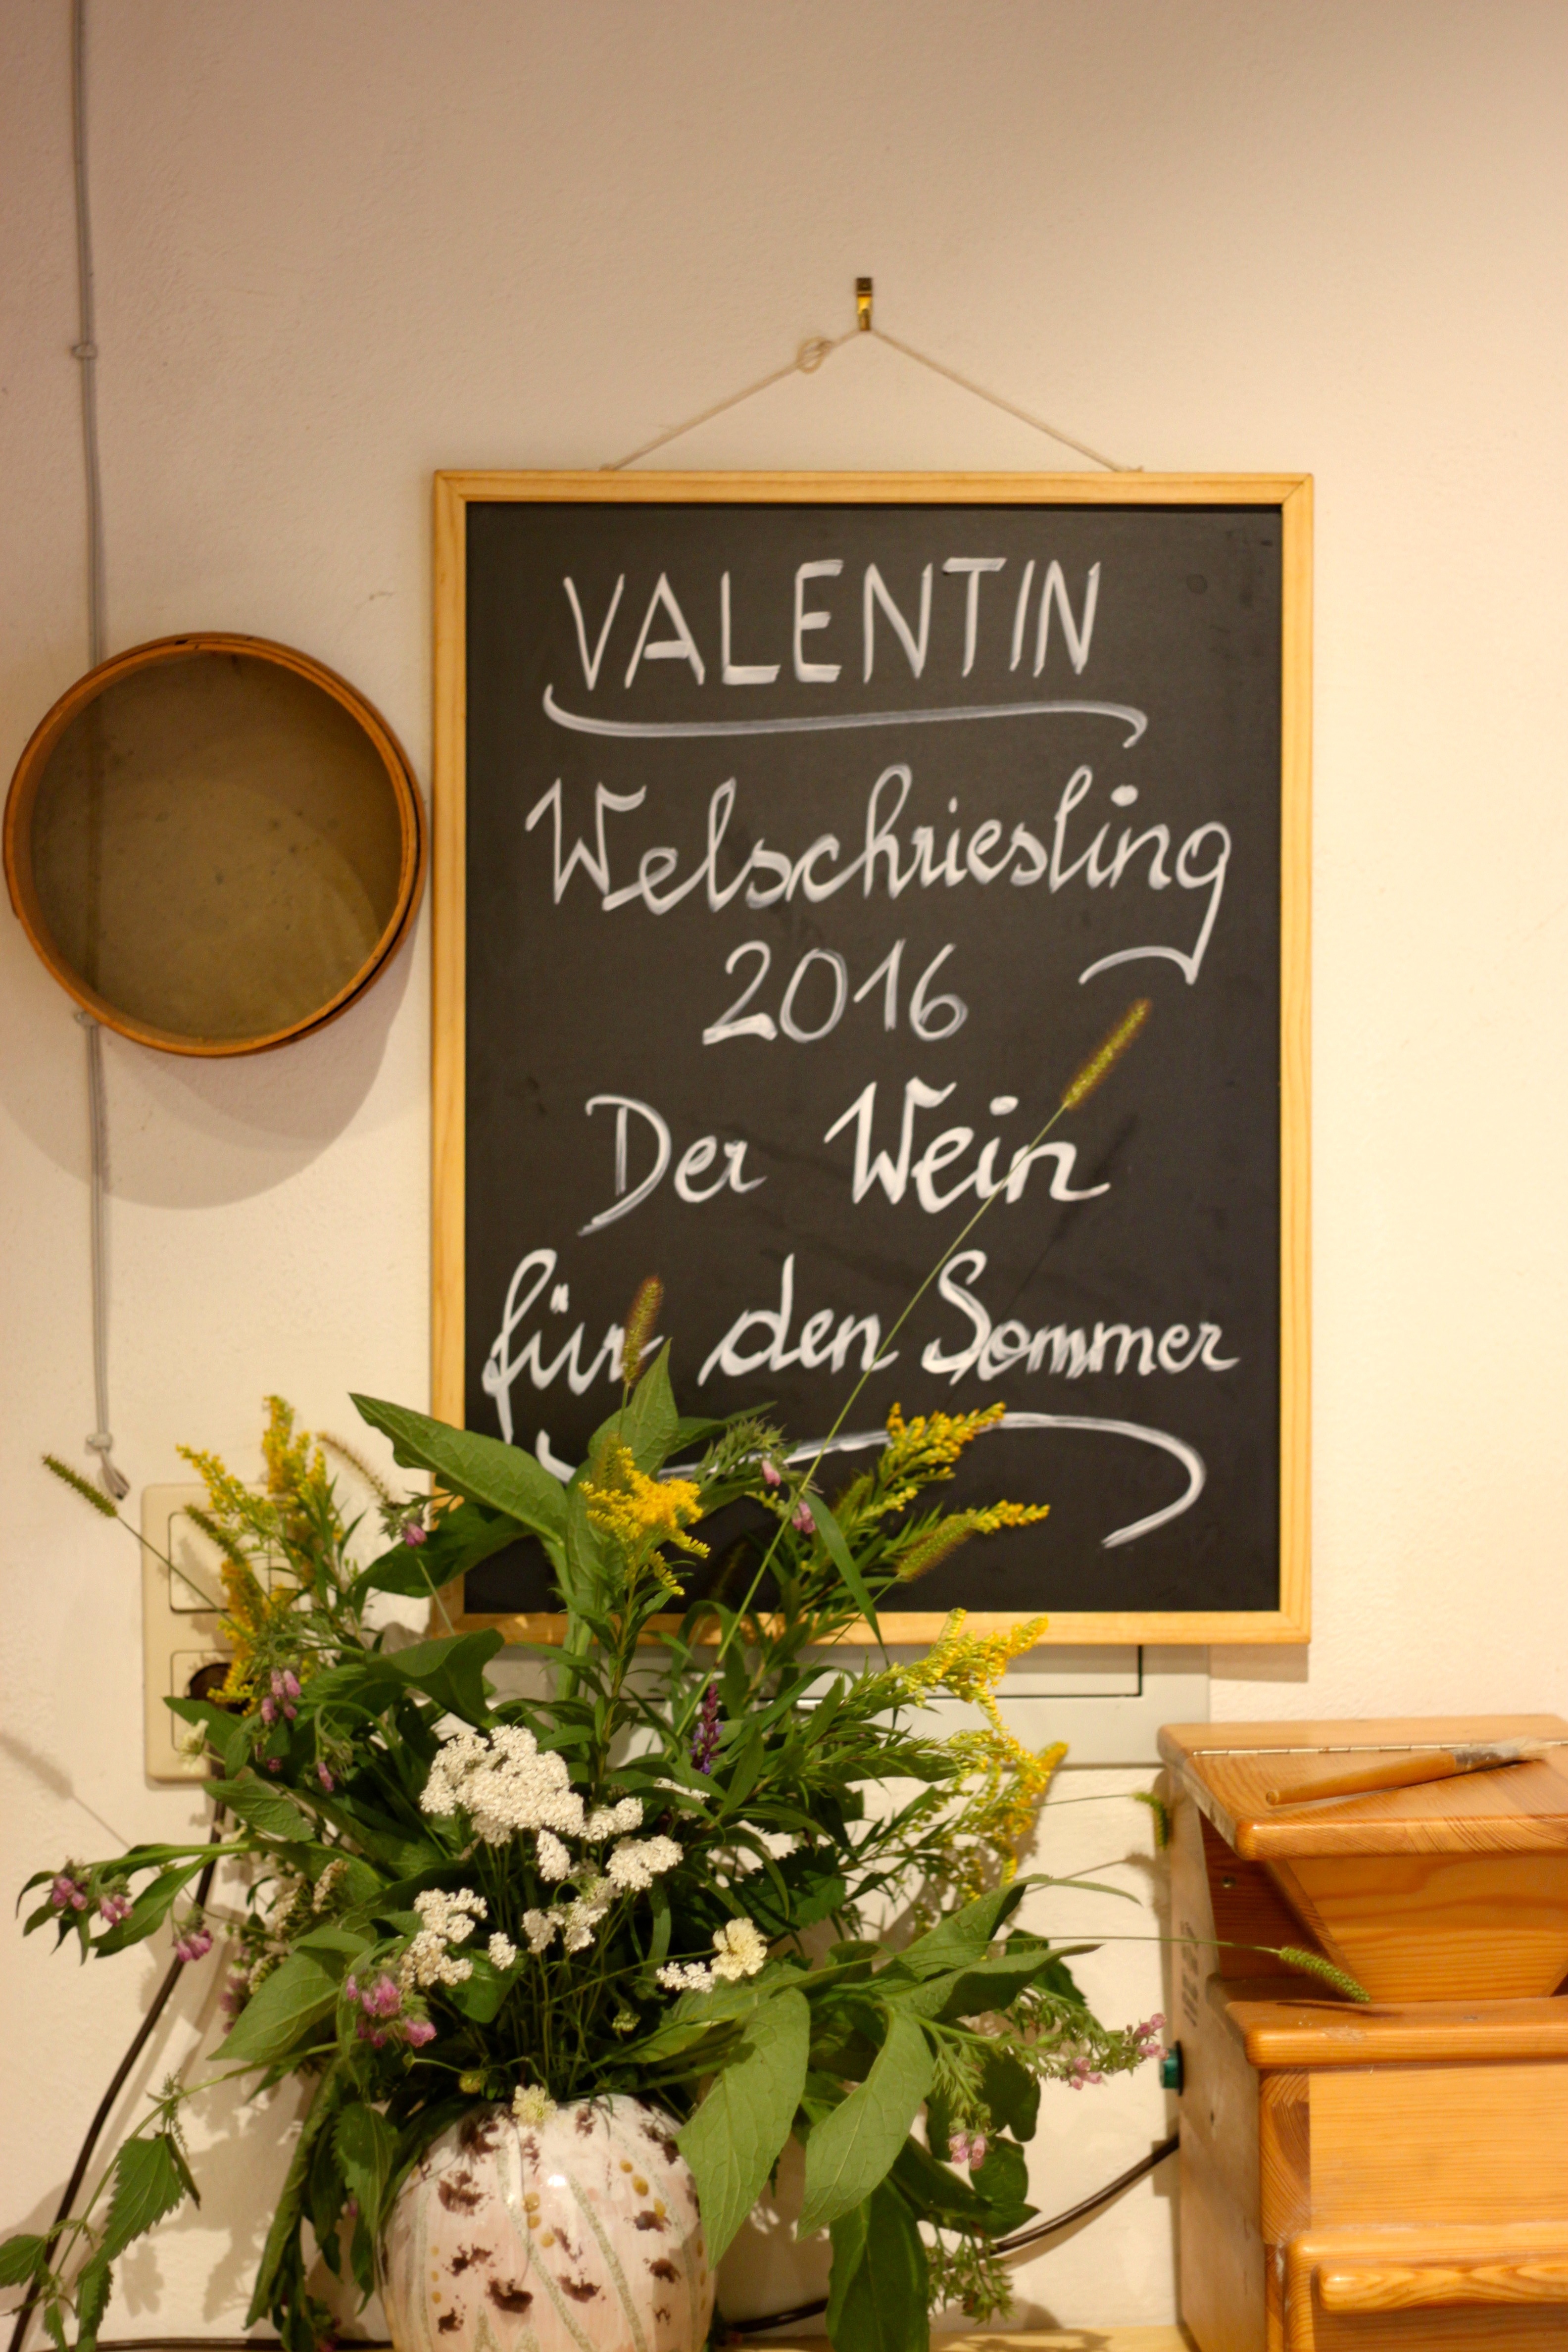 VALENTIN
Welschriesling
2016
Der Wein
für den Sommer